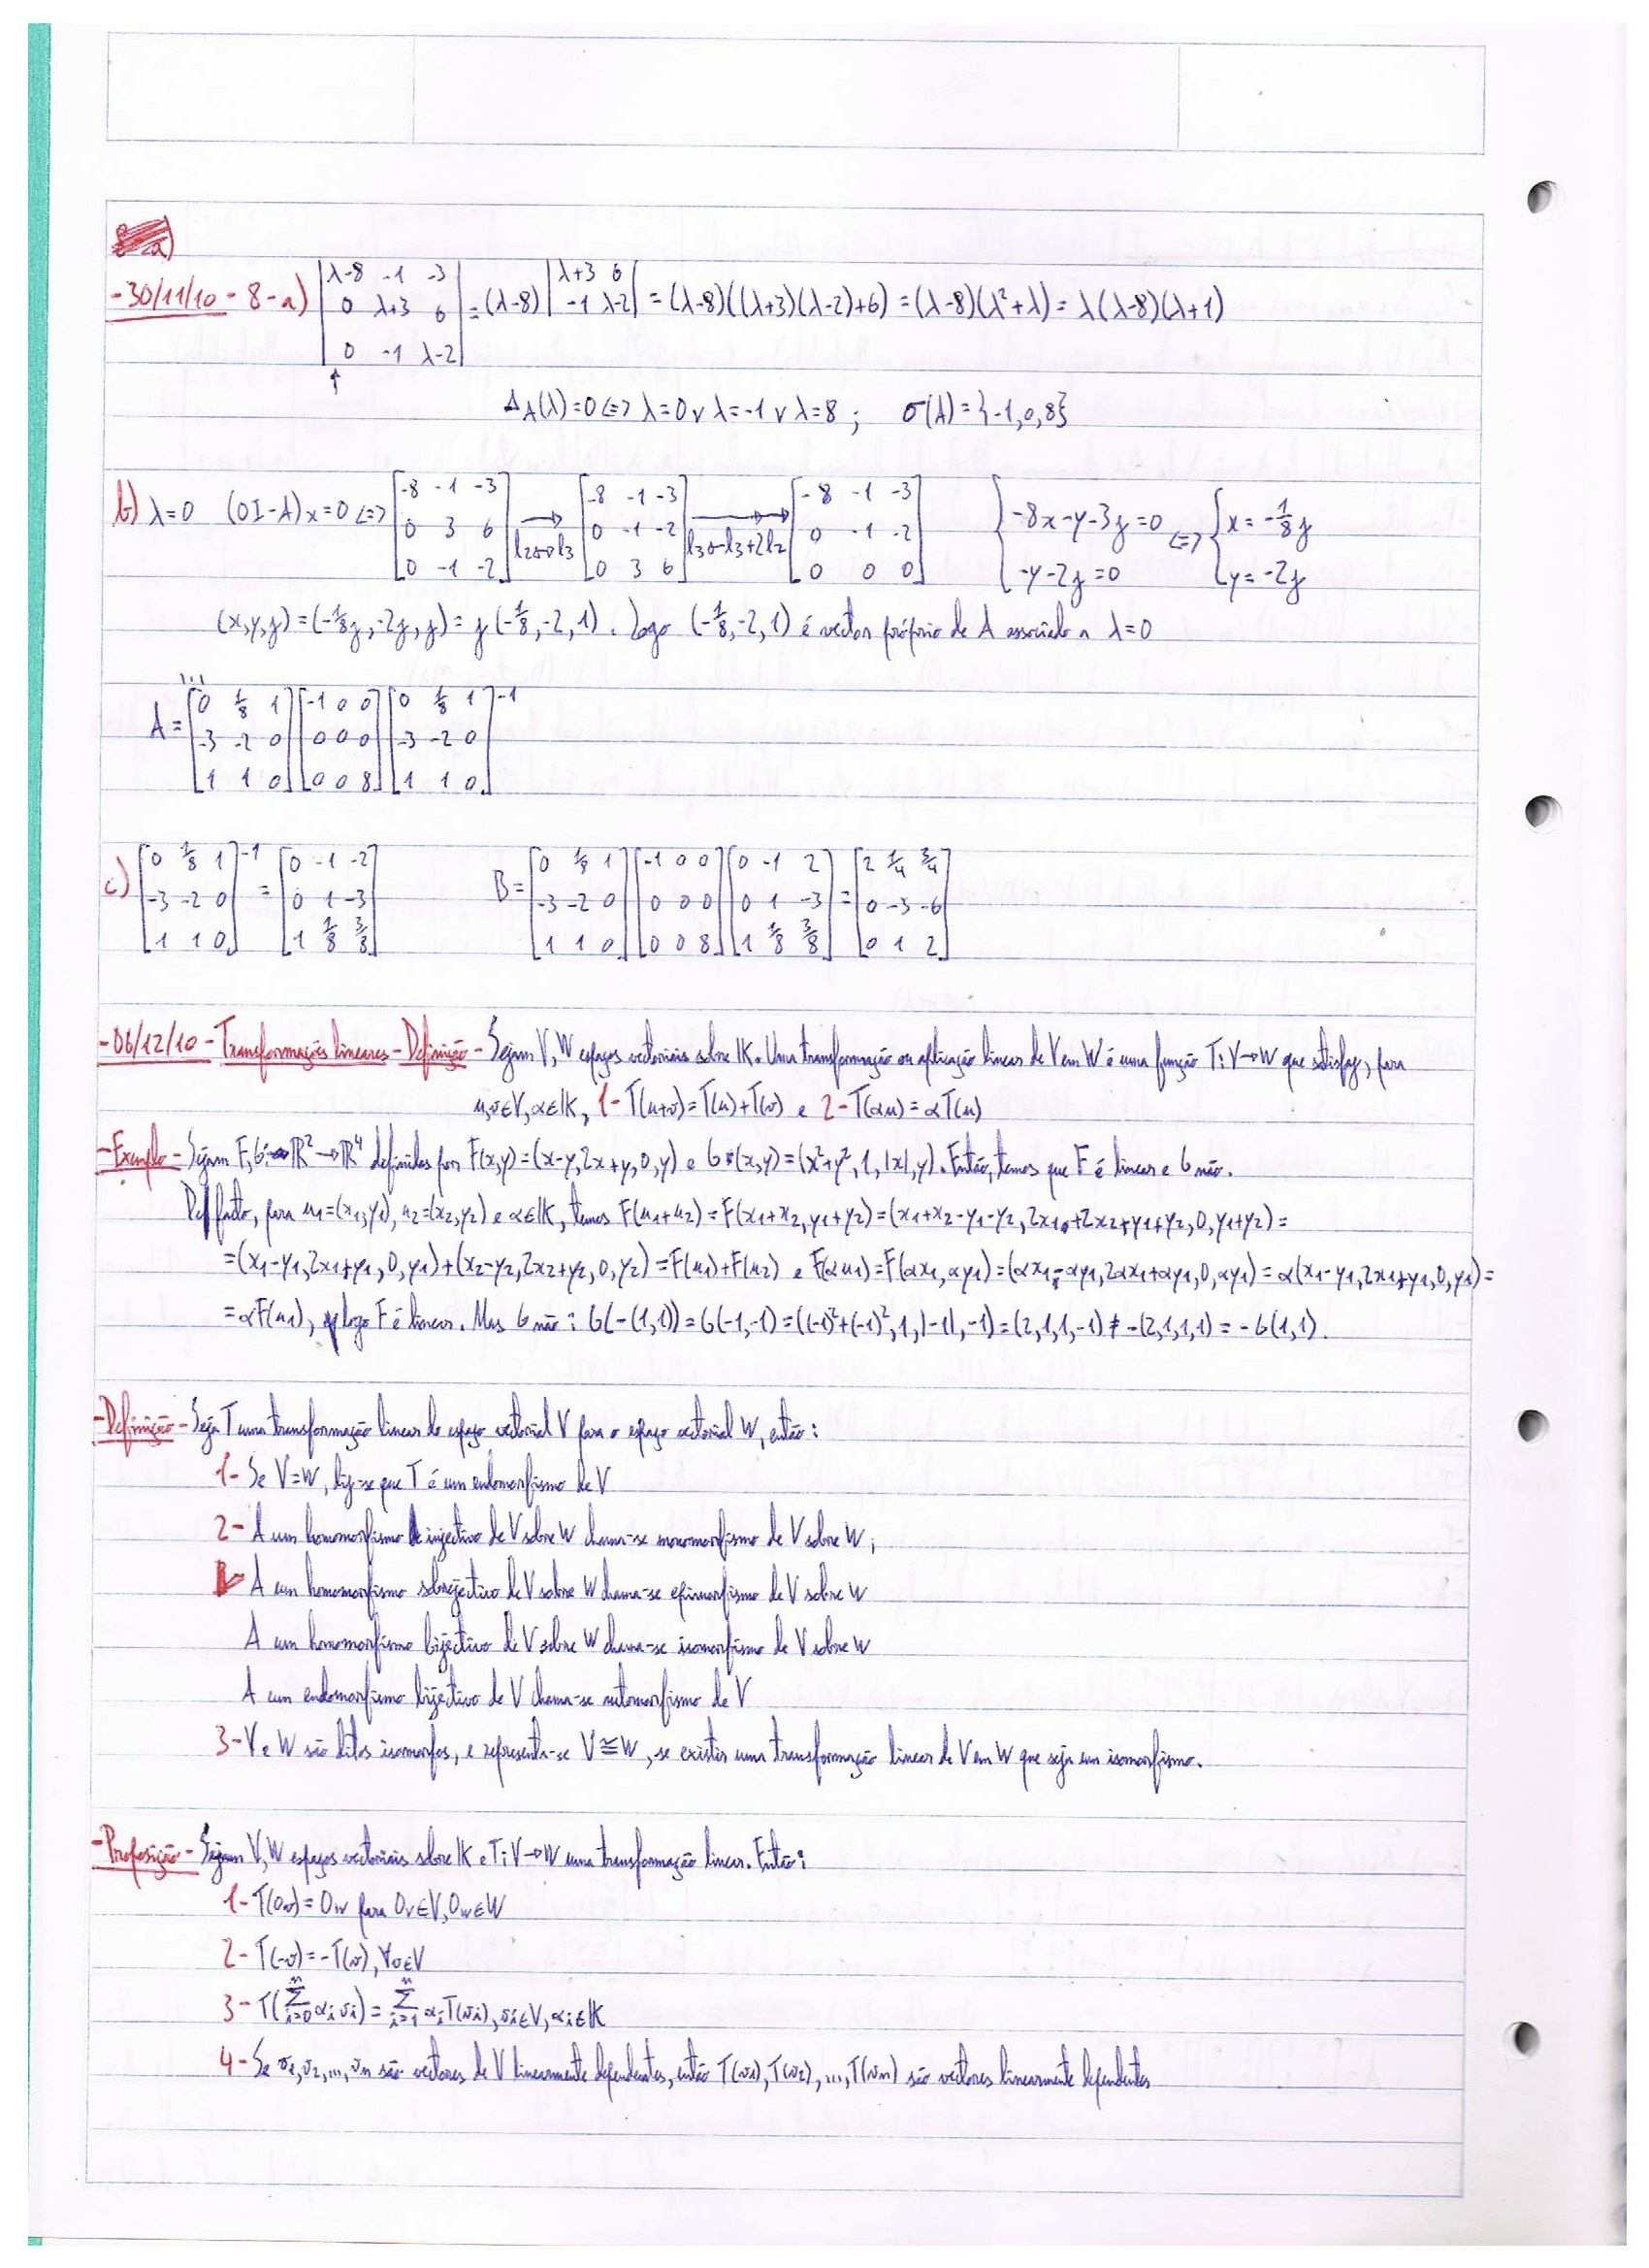 -30/11/10 - 8-a) |λ-8 -1 -3; 0 λ+3 6; 0 -1 λ-2| = (λ-8)|λ+3 6; -1 λ-2| = (λ-8)((λ+3)(λ-2)+6) = (λ-8)(λ²+λ) = λ(λ-8)(λ+1)
↑
Δ_A(λ)=0 <=> λ=0 ∨ λ=-1 ∨ λ=8 ; σ(A)={-1,0,8}
b) λ=0 (0I-A)x=0 <=> [-8 -1 -3; 0 3 6; 0 -1 -2] →(l2↔l3) [-8 -1 -3; 0 -1 -2; 0 3 6] →(l3←l3+2l2) [-8 -1 -3; 0 -1 -2; 0 0 0] {-8x-y-3z=0; -y-2z=0 <=> {x=-1/8z; y=-2z
(x,y,z)=(-1/8z,-2z,z)=z(-1/8,-2,1). Logo (-1/8,-2,1) é vector próprio de A associado a λ=0
A=[0 1/8 1; -3 -2 0; 1 1 0][-1 0 0; 0 0 0; 0 0 8][0 1/8 1; -3 -2 0; 1 1 0]⁻¹
c) [0 1/8 1; -3 -2 0; 1 1 0]⁻¹ = [0 -1 -2; 0 1 -3; 1 1/8 3/8] B=[0 1/8 1; -3 -2 0; 1 1 0][-1 0 0; 0 0 0; 0 0 8][0 -1 2; 0 1 -3; 1 1/8 3/8]=[2 1/4 3/4; 0 -3 -6; 0 1 2]
-06/12/10 - Transformações lineares - Definição - Sejam V, W espaços vectoriais sobre IK. Uma transformação ou aplicação linear de V em W é uma função T:V→W que satisfaz, para
u,v∈V, α∈IK, 1-T(u+v)=T(u)+T(v) e 2-T(αu)=αT(u)
-Exemplo - Sejam F,G: ℝ²→ℝ⁴ definidas por F(x,y)=(x-y,2x+y,0,y) e G(x,y)=(x²+y²,1,|x|,y). Então, temos que F é linear e G não.
De facto, para u1=(x1,y1), u2=(x2,y2) e α∈IK, temos F(u1+u2)=F(x1+x2,y1+y2)=(x1+x2-y1-y2,2x1+2x2+y1+y2,0,y1+y2)=
=(x1-y1,2x1+y1,0,y1)+(x2-y2,2x2+y2,0,y2)=F(u1)+F(u2) e F(αu1)=F(αx1,αy1)=(αx1-αy1,2αx1+αy1,0,αy1)=α(x1-y1,2x1+y1,0,y1)=
=αF(u1), logo F é linear. Mas G não: G(-(1,1))=G(-1,-1)=((-1)²+(-1)²,1,|-1|,-1)=(2,1,1,-1)≠-(2,1,1,1)=-G(1,1).
-Definição - Seja T uma transformação linear do espaço vectorial V para o espaço vectorial W, então:
1- Se V=W, diz-se que T é um endomorfismo de V
2- A um homomorfismo injectivo de V sobre W chama-se monomorfismo de V sobre W;
A um homomorfismo sobrejectivo de V sobre W chama-se epimorfismo de V sobre W
A um homomorfismo bijectivo de V sobre W chama-se isomorfismo de V sobre W
A um endomorfismo bijectivo de V chama-se automorfismo de V
3- V e W são ditos isomorfos, e representa-se V≅W, se existir uma transformação linear de V em W que seja um isomorfismo.
-Proposição - Sejam V, W espaços vectoriais sobre IK e T:V→W uma transformação linear. Então:
1- T(0v)=0w para 0v∈V, 0w∈W
2- T(-v)=-T(v), ∀v∈V
3- T(∑_{i=0}^{n} αi vi)=∑_{i=1}^{n} αi T(vi), vi∈V, αi∈IK
4- Se v1,v2,...,vn são vectores de V linearmente dependentes, então T(v1),T(v2),...,T(vn) são vectores linearmente dependentes